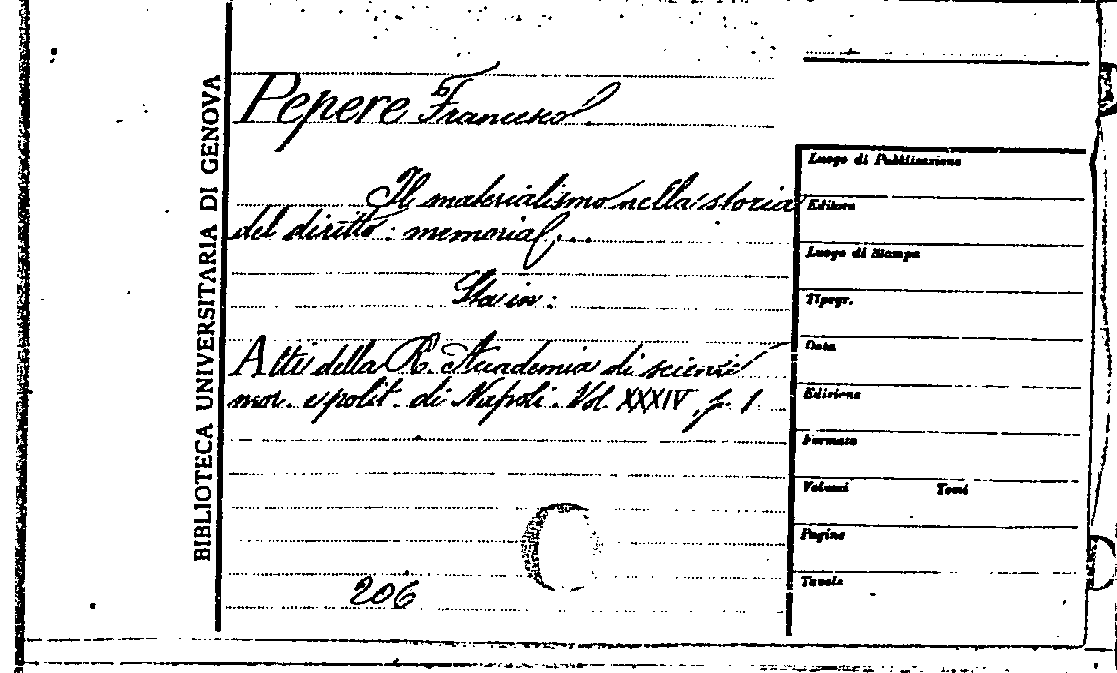 BIBLIOTECA UNIVERSITARIA DI GENOVA
Pepere Francesco.
Il materialismo nella storia
del diritto: memoria/...
Sta in:
Atti della R. Accademia di scienze
mor. e polit. di Napoli. Vol. XXXIV, p. 1
206
Luogo di Pubblicazione
Editore
Luogo di Stampa
Tipogr.
Data
Edizione
Formato
Volumi Tomi
Pagine
Tavole